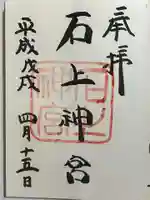 奉拝
石上神宮
平成戊戌 四月十五日